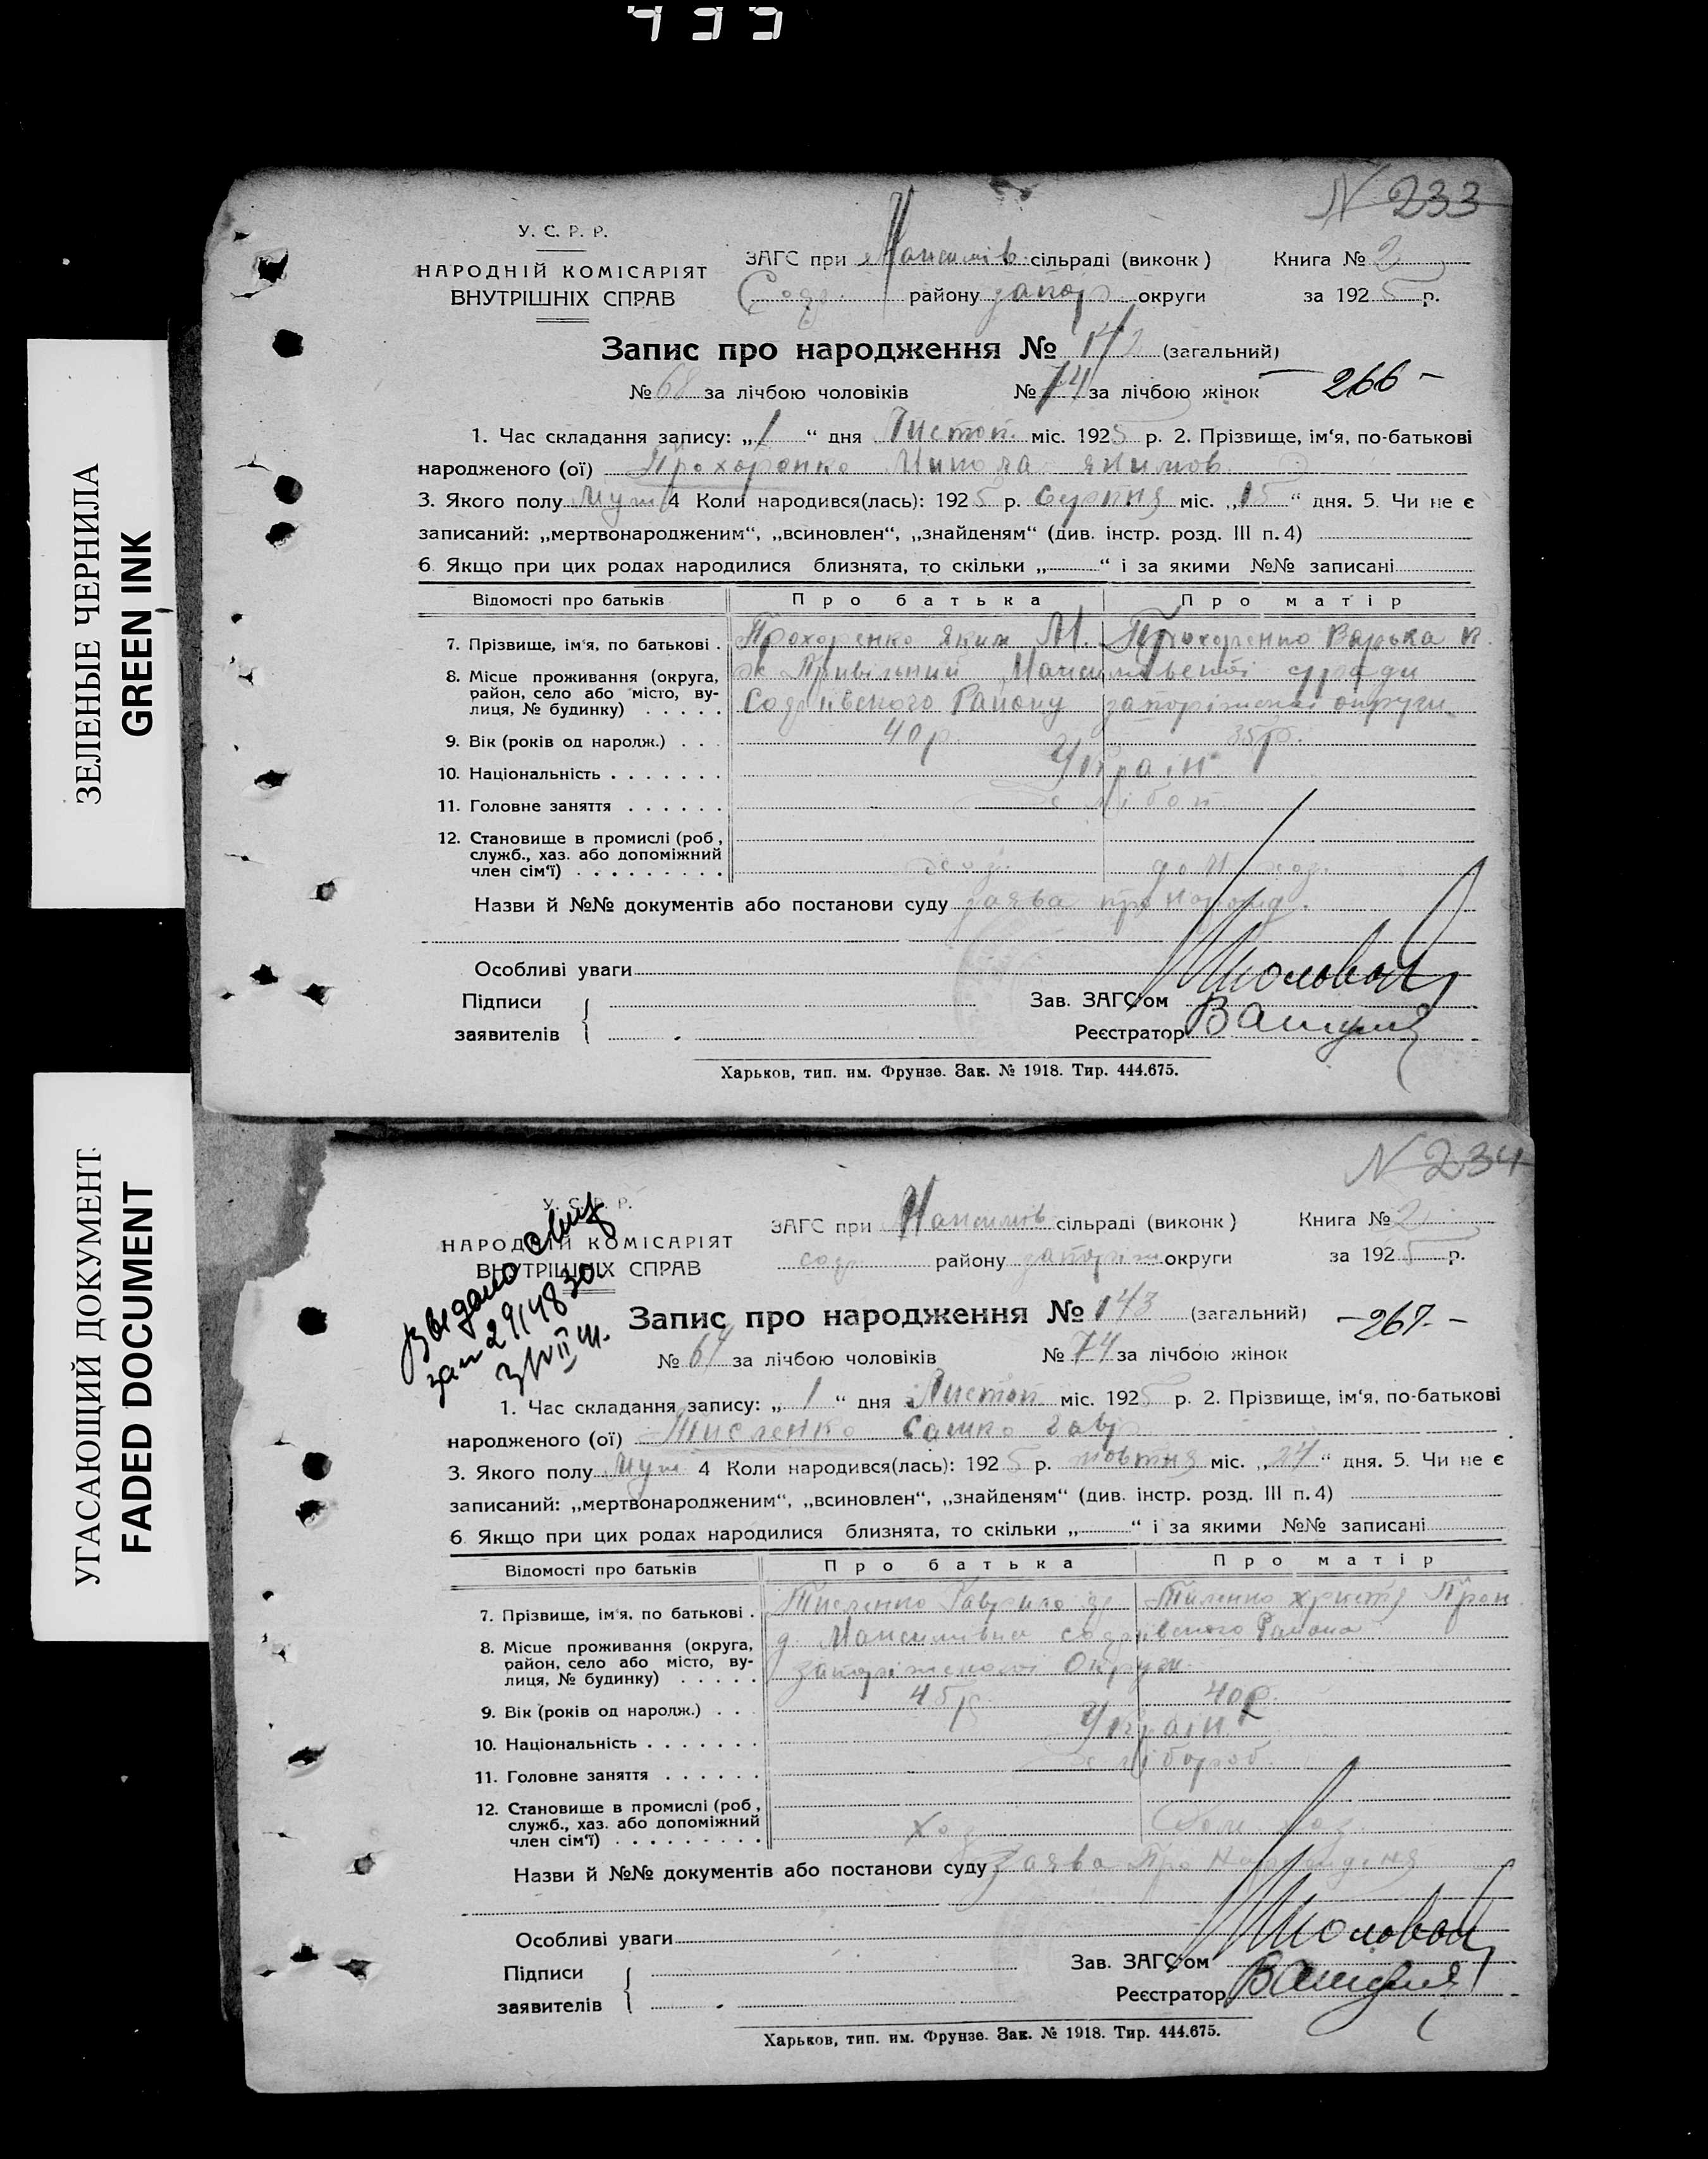 433
ЗЕЛЕНЫЕ ЧЕРНИЛА
GREEN INK
УГАСАЮЩИЙ ДОКУМЕНТ
FADED DOCUMENT
N 233
У. С. Р. Р.
НАРОДНІЙ КОМІСАРІЯТ
ВНУТРІШНІХ СПРАВ
ЗАГС при Максимів. сільраді (виконк) Книга № 2
району запор округи за 1925 р.
Запис про народження № 142 (загальний)
№ 68 за лічбою чоловіків № 74 за лічбою жінок 266 -
1. Час складання запису: „1“ дня Листоп. міс. 1925 р. 2. Прізвище, ім'я, по-батькові
народженого (ої) Прохоренко Микола Якимов
3. Якого полу Муж 4 Коли народився(лась): 1925 р. Серпня міс. „15“ дня. 5. Чи не є
записаний: „мертвонародженим“, „всиновлен“, „знайденям“ (див. інстр. розд. III п. 4)
6. Якщо при цих родах народилися близнята, то скільки „ “ і за якими №№ записані
Відомості про батьків Про батька Про матір
7. Прізвище, ім'я, по батькові . Прохоренко Яким М. Прохоренко Варька
8. Місце проживання (округа, район, село або місто, вулиця, № будинку) . . . . . х. Привільний Максимівської с/ради
Софіївского Району запоріжської округи
9. Вік (років од народж.) . . . 40 р. 35 р.
10. Національність . . . . . . . Україн
11. Головне заняття . . . . . .
12. Становище в промислі (роб., служб., хаз. або допоміжний член сім'ї) . . . . . . . . . дом хоз.
Назви й №№ документів або постанови суду заява про народ.
Особливі уваги
Підписи
заявителів
Зав. ЗАГС'ом
Реєстратор
Харьков, тип. им. Фрунзе. Зак. № 1918. Тир. 444.675.
N 234
У. С. Р. Р.
НАРОДНІЙ КОМІСАРІЯТ
ВНУТРІШНІХ СПРАВ
ЗАГС при Максимів сільраді (виконк) Книга № 2
соф. району запоріж округи за 1925 р.
Запис про народження № 143 (загальний) -267.-
№ 69 за лічбою чоловіків № 74 за лічбою жінок
1. Час складання запису: „1“ дня Листоп міс. 1925 р. 2. Прізвище, ім'я, по-батькові
народженого (ої) Тисленко Сашко Гавр
3. Якого полу Муж 4 Коли народився(лась): 1925 р. жовтня міс. „24“ дня. 5. Чи не є
записаний: „мертвонародженим“, „всиновлен“, „знайденям“ (див. інстр. розд. III п. 4)
6. Якщо при цих родах народилися близнята, то скільки „ “ і за якими №№ записані
Відомості про батьків Про батька Про матір
7. Прізвище, ім'я, по батькові . Тисленко Гаврило Христя
8. Місце проживання (округа, район, село або місто, вулиця, № будинку) . . . . . Максимівка софіївского Района
запоріжської Округи
9. Вік (років од народж.) . . . 45 р. 40 р.
10. Національність . . . . . . . Україн
11. Головне заняття . . . . . . хлібороб.
12. Становище в промислі (роб., служб., хаз. або допоміжний член сім'ї) . . . . . . . . . Хоз Дом. хоз.
Назви й №№ документів або постанови суду Заява Про Народженя
Особливі уваги
Підписи
заявителів
Зав. ЗАГС'ом
Реєстратор
Харьков, тип. им. Фрунзе. Зак. № 1918. Тир. 444.675.